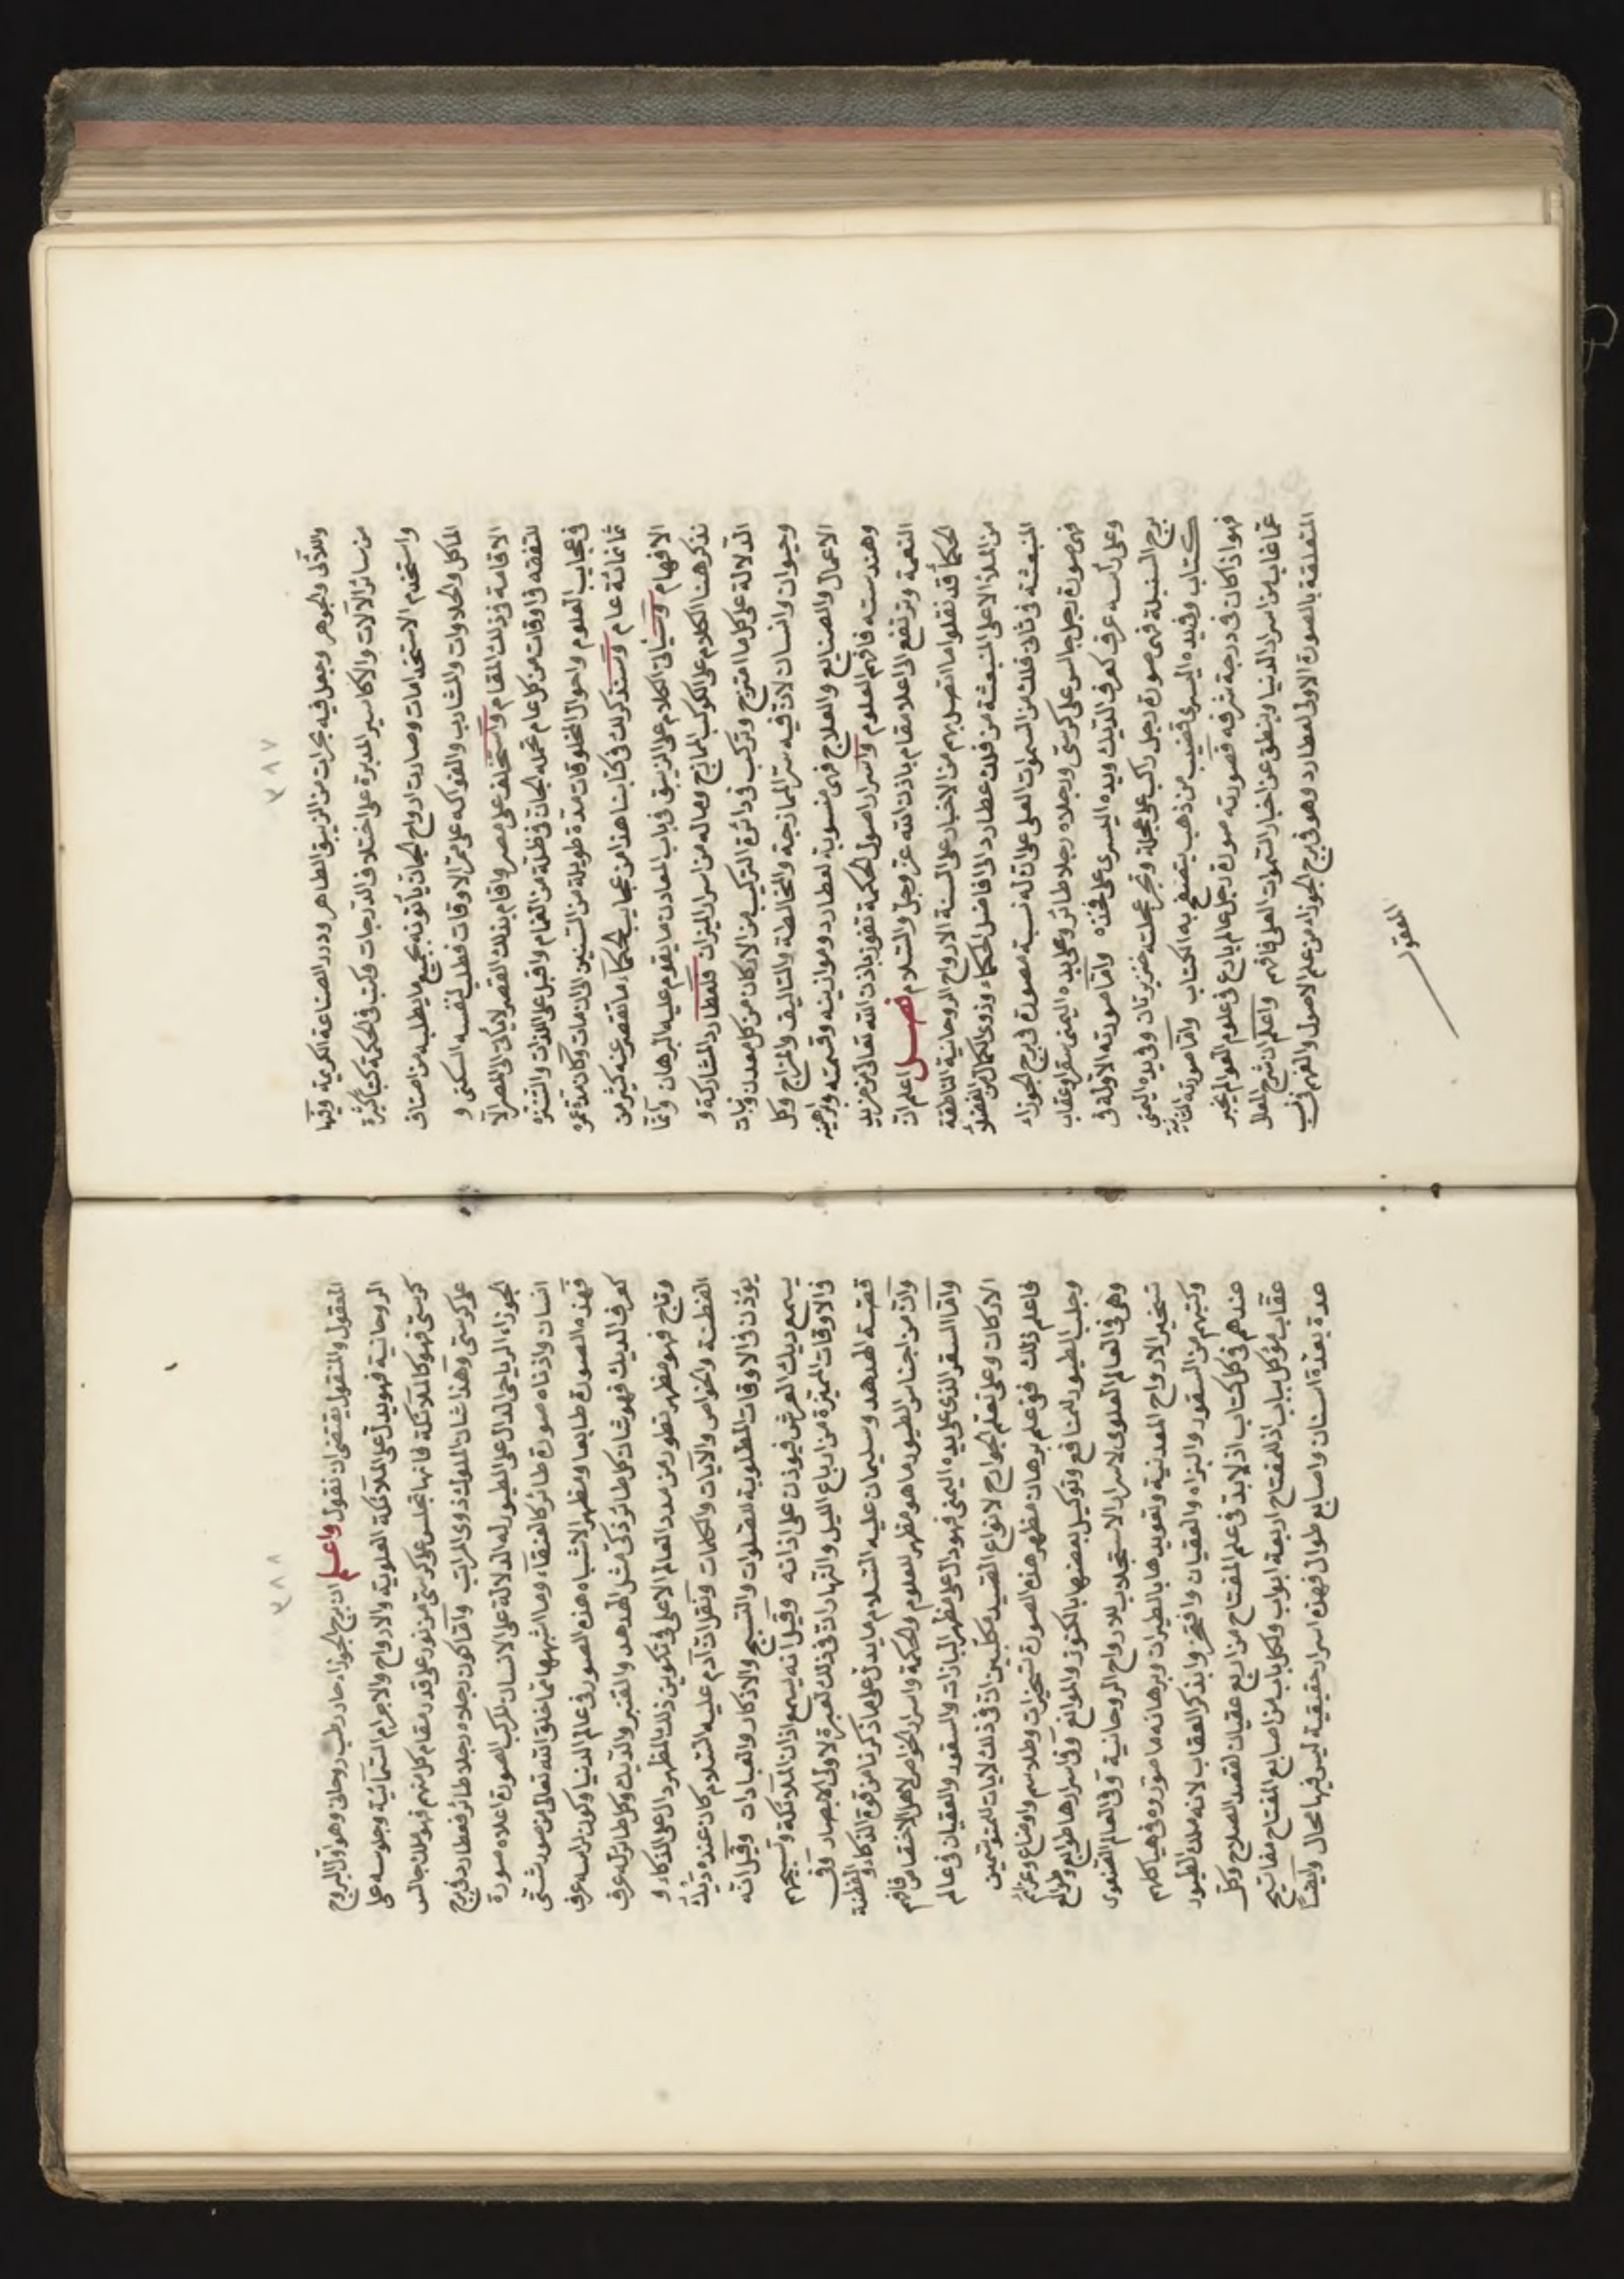 ٣٨٧
واللآلئ والجوهر وجعل فيه بحرات من الزيبق الطاهر ودرر الصناعة الكريمة وفيها
من سائر الآلات والاكاسير المدبرة على اختلاف الدرجات وكتب في الحكمة كتبا كثيرة
واستخدم الاستخدامات وصارت ارواح الجان يأتونه بجميع ما يطلبه من اصناف
المآكل والحلاوات والمشارب والفواكه على ممر الاوقات فطلب لنفسه السكنى و
الاقامة في ذلك المقام واستخلف على مصر واقام بذلك القصر لا يأتي الى المصر الا
للتفقه في اوقات من كل عام تحمله الجان في ظلة من الغمام واقبل على اللذات والتنزه
في عجايب العلوم واحوال المخلوقات مدة طويلة من السنين الى ان مات وكانت مدة عمره
ثمانمائة عام وسنذكر لك في كتابنا هذا من عجايب الحكماء ما تقصر عنه كثير من
الافهام وسيأتي الكلام على الزيبق في باب المعادن ما يقوم عليه البرهان وانما
نذكر هنا الكلام على الكوكب الممازج وماله من اسرار الميزان فلعطارد المشاركة و
الدلالة على كل ما امتزج وتركب في دائرة التركيب من الاركان من كل معدن ونبات
وحيوان وانسان لان فيه سر الممازجة والمخالطة والتاليف والمزاج وكل
الاعمال والصنايع والعلاج فهي منسوبة لعطارد وموازينه وقسمته وبراهينه
وهندسته فافهم العلوم واسرار اصول الحكمة تفوز باذن الله تعالى من مزيد
النعمة وترتفع الى اعلا مقام باذن الله عز وجل والسلام فصل اعلم ان
الحكماء قد نقلوا ما اتصل بهم من الاخبار على السنة الارواح الروحانية الناطقة
من الملأ الاعلى المنبعثة من فلك عطارد الى افاضل الحكماء وذوي الكمال من الفضلاء
المنبعثة في ثاني فلك من السموات العلى على ان له نسبة مصورة في برج الجوزاء
فهي صورة رجل جالس على كرسي ورجلاه رجلا طائر وعلى يده اليمنى سقر او عقاب
وعلى رأسه عرف كعرف الديك ويده اليسرى على فخذه واما صورته الاولة في
برج السنبلة فهي صورة رجل راكب على عجلة وتجر عجلته خنزيرتان وفي يده اليمنى
كتاب وفي يده اليسرى قضيب من ذهب يتصفح به الكتاب واما صورته الثانية
فهو اذا كان في درجة شرفه فصورته صورة رجل عالم بارع في علوم العوالم يخبر
عما غاب من اسرار الدنيا وينطق عن اخبار السموات العلى فافهم واعلم ان شرح المقال
المتعلقة بالصورة الاولى لعطارد وهو في برج الجوزاء من علم الاصول والفهم في
المعقول
٣٨٨
المعقول والمنقول يقتضي ان نقول واعلم ان برج الجوزاء حار رطب روحاني وهو اول البروج
الروحانية فهو يدل على الملائكة العلوية والارواح والاجرام السمائية وجلوسه على
كرسي فهو كالملائكة فانها تجلس على كرسي من نور على قدر مقام كل منهم فهو ملك جالس
على كرسي وهذا شان الملوك ذوى المراتب واما كون رجلاه رجلا طائر فعطارد في برج
الجوزاء الرياحي الدال على الطيور له الدلالة على الانسان المركب الصورة اعلاه صورة
انسان وادناه صورة طائر كالعنقاء وما اشبهها مما خلق الله تعالى من صور شتى
فهذه الصورة طابعا ومظهر الاشباه هذه الصور في عالم الدنيا وكون لراسه عرف
كعرف الديك فهو شان كل طائر ذكي مثل الهدهد والقنبر والديك وكل طائر له عرف
وتاج فهو مظهر تطور من مدد العالم الاعلى في تكوين ذلك المظهر دال على الذكاء و
الفطنة والخواص والآيات والكلمات ونقل ان آدم عليه السلام كان عنده ديك
يؤذن في الاوقات المطلوبة للصلوات والتسبيح والاذكار والعبادات وقيل انه
يسمع ديك العرش فيؤذن على اذانه وقيل انه يسمع اذان الملائكة وتسبيحهم
في الاوقات المميزة من ارباع الليل والنهار ان في ذلك لعبرة لاولى الابصار وفي
قصة الهدهد وسليمان عليه السلام ما يدل على ما ذكرنا من قوة الذكاء والفطنة
وان من اجناس الطيور ما هو مظهر للعلوم والحكمة واسرار الخواص لاهل الاختصاص فافهم
واما السقر الذي على يده اليمنى فهو دال على مظهر البازات والسقور والعقبان في عالم
الاركان وعلى تعلم الجوارح لانواع الصيد مكلبين ان في ذلك لايات للمتوسمين
فاعلم ذلك ففي علم برهان مظهر هذه الصورة تسخيرات وطلاسم واوضاع وعزائم
وجلب الطيور للمنافع وتوكيل بعضها بالكنوز والموانع وفي اسرارها طوايع وطوالع
وهي في العالم العلوي لاسرار الاستجلاب للارواح الروحانية وفي العالم الصنعوي
تسخير الارواح المعدنية وتقويدها بالطيران وبرهانه ما صوروه في هياكلهم
وكتبهم من السقور والبزاه والعقبان وافتخر وابذكر العقاب لانه ملك الطيور
عندهم في كل كتاب اذ لابد في علم المفتاح من اربع عقبان لقصد الصلاح وكل
عقاب موكل بباب اذ للمفتاح اربعة ابواب ولكل باب من اصابع المفتاح مفاتيح
عدة بعدة اسنان واصابع طوال فهذه اسرار حقيقية ليس فيها محال وايضا